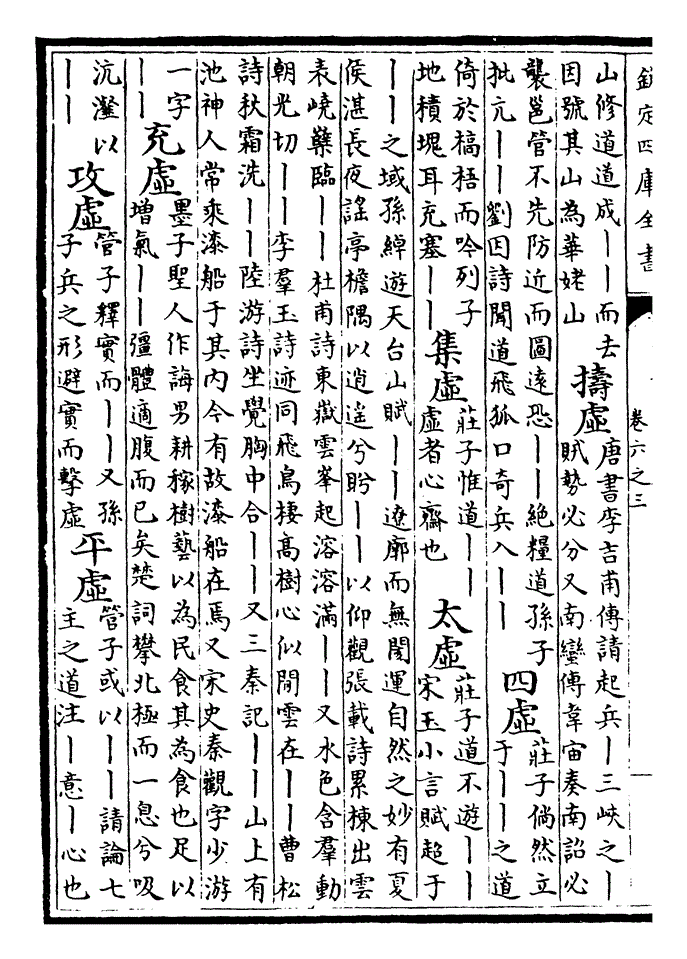 欽定四庫全書
卷六之三
山修道道成——而去
因號其山為華姥山
擣虛
唐書李吉甫傳請起兵—三峽之—
賦勢必分又南蠻傳韋宙奏南詔必
襲邕管不先防近而圖遠恐——絕糧道孫子
批亢——劉因詩聞道飛狐口奇兵入——
四虛
莊子倘然立
于——之道
倚於槁梧而吟列子
地積塊耳充塞——
集虛
莊子惟道——
虛者心齋也
太虛
莊子道不遊——
宋玉小言賦超于
——之域孫綽遊天台山賦——遼廓而無閡運自然之妙有夏
侯湛長夜謠亭檐隅以逍遙兮盻——以仰觀張載詩累棟出雲
表嶢櫱臨——杜甫詩東嶽雲峯起溶溶滿——又水色含羣動
朝光切——李羣玉詩迹同飛鳥棲高樹心似閒雲在——曹松
詩秋霜洗——陸游詩坐覺胸中合——又三秦記——山上有
池神人常乘漆船于其內今有故漆船在焉又宋史秦觀字少游
一字
——
充虛
墨子聖人作誨男耕稼樹藝以為民食其為食也足以
增氣——彊體適腹而已矣楚詞攀北極而一息兮吸
沆瀣以
——
攻虛
管子釋實而——又孫
子兵之形避實而擊虛
平虛
管子或以——請論七
主之道注—意—心也